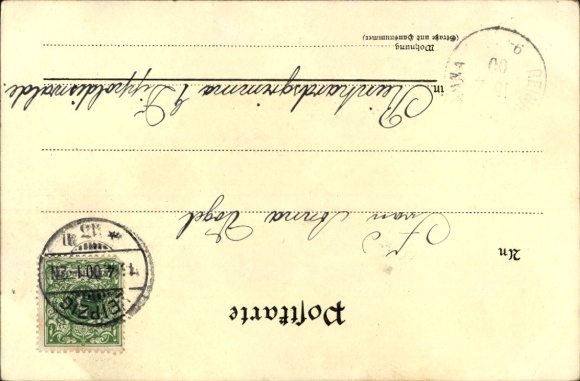 Postkarte
An
Frau Anna Vogel
in Reinhardsgrimma b. Dippoldiswalde.
Wohnung
(Straße und Hausnummer)
LEIPZIG
* 13 *